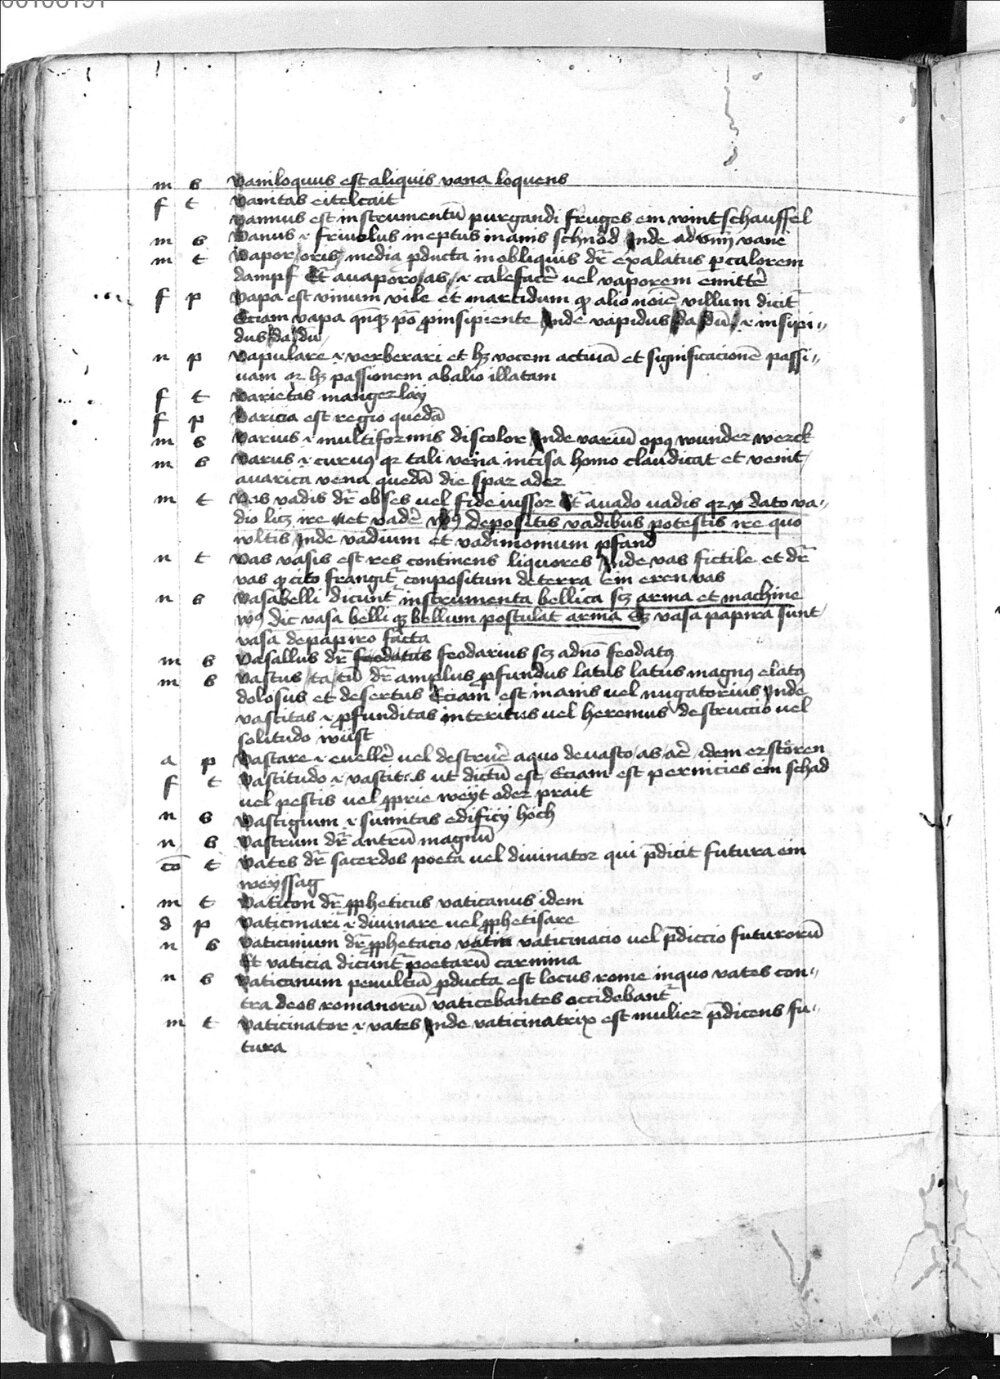 m s Vaniloquus est aliquis vana loquens
f t Vanitas eitelcait
Vannus est instrumentū purgandi fruges ein wintschauffel
m s Vanus .i. friuolus ineptus inanis schnöd Inde aduerbium vane
m t Vapor /oris/ media ꝓducta in obliquis dr̄ exalatus ꝑ calorem
dampf Et a vaporo /as/ .i. calefacē vel vaporem emittē
f p Vapa est vinum vile et marcidum qd alio noīe villum dicit᷑
Eciam vapa qn̄qꝫ pō pro insipiente Inde vapidus /da /dū/ .i. insipi-
dus /da /dū/
n p Vapulare .i. verberari et hꝫ vocem actiuā et significacionē passi-
uam qr hꝫ passionem ab alio illatam
f t Varietas mangerlay
f p Varicia est regio quedā
m s Varius .i. multiformis discolor Inde variū opꝰ wunder werck
m s Varus .i. curuꝰ qr tali vena incisa homo claudicat et venit
a varica vena quedā die spar ader
m t Vas vadis dr̄ obses vel fideiussor Et a vado vadis qr dato va-
dio licꝫ ire et vadē Vꝰ depositis vadibus potestis ire quo
wltis Inde vadium et vadimonium pfand
n t Vas vasis est res continens liquores Inde vas fictile et dr̄
vas qd cito frangit᷑ conpositum de terra ein eren vas
n s Vasa belli dicunt᷑ instrumenta bellica scꝫ arma et machine
Vꝰ dic vasa belli qꝫ bellum postulat arma Sꝫ vasa papira sunt
vasa de papiro facta
m s Vasallus dr̄ feodatus feodarius scꝫ ad nō feodatꝰ
m s Vastus /ta /tū/ dr̄ amplus ꝓfundus latus latus magnꝰ elatꝰ
dolosus et desertus Eciam est inanis vel nugatorius Inde
vastitas .i. ꝓfunditas interitus vel heremus destruccio vel
solitudo wüst
a p Vastare .i. euellē vel destruē a quo deuasto /as aē idem erstören
f t Vastitudo .i. vastitas ut dictū est Eciam est pernicies ein schad
vel pestis vel ꝓprie weyt oder prait
n s Vastigium .i. sum̄itas edificij höch
n s Vastrum dr̄ antrū magnū
cō t Vates dr̄ sacerdos poeta vel diuinator qui p̄dicit futura ein
weyssag
m t Vaticon dr̄ ꝓpheticus vaticanus idem
d p Vaticinari .i. diuinare vel ꝓphetisare
n s Vaticinium dr̄ ꝓphetacio vaticinacio vel p̄diccio futurorū
Et vaticia dicunt᷑ poetarū carmina
n s Vaticanum penultīa ꝓducta est locus rome in quo vates con-
tra deos romanorū vaticebantes occidebant᷑
m t Vaticinator .i. vates Inde vaticinatrix est mulier p̄dicens fu-
tura